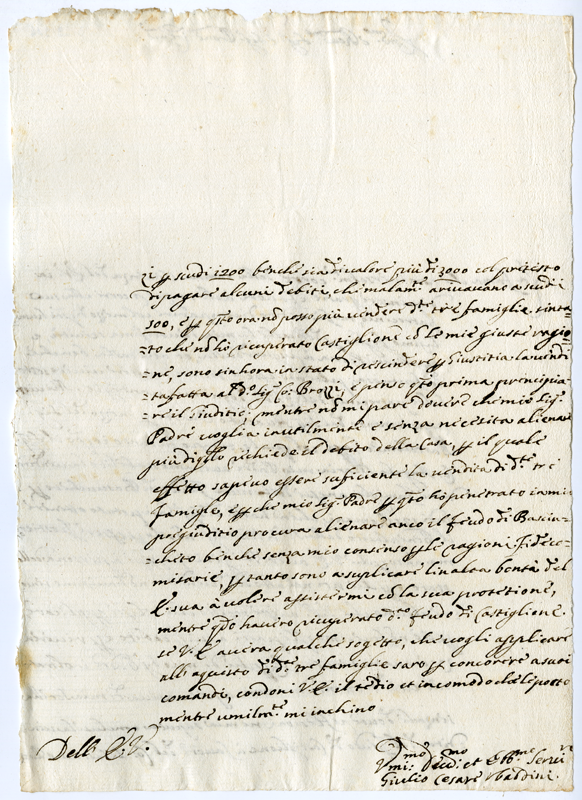 zi p scudi 1200 benche sia di valore più di 3000 col pretesto
di pagare alcuni debiti, che malam.te arivavano a scudi
100, e p q.to ora nō posso più vendere d.te tre famiglie, sinta=
=to che nō hō ricuperato Castiglione cō le mie giuste ragio=
=ne, sono sin hora in stato di rescindere p Giustitia la vendi
=ta fatta al d.o Sig.r Co: Brozzi, e penso q.to prima principia=
=re il Giuditio, mentre nō mi pare dovere che mio Sig.r
Padre voglia inutilmente e senza necesita alienare
più di q.lo richiede il debito della Casa, p il quale
effetto sapevo essere suficiente la vendita di d.te tre
famigle, e p che mio Sig.r Padre p q.to hò penetrato in mio
pregiuditio procura alienare anco il feudo di Bascu=
=cheto benche senza mio consenso p le ragioni fideco=
mitarie, p tanto sono a suplicare l'inalta bontà del
E. sua à volere assistermi cō la sua protetione,
mentre q.do havero ricuperato d.o feudo di Castiglione
se V. E. avera qualche sogetto, che vogli applicare
all'aquisto di d.te tre famiglie saro p concorere a suoi
comandi, condoni V. E. il tedio et incomodo che le porto
mentre umilm.te mi inchino
Dell' E. V.
Vmi: Dev.mo et Obb.mo Servi.re
Giulio Cesare Vbaldini